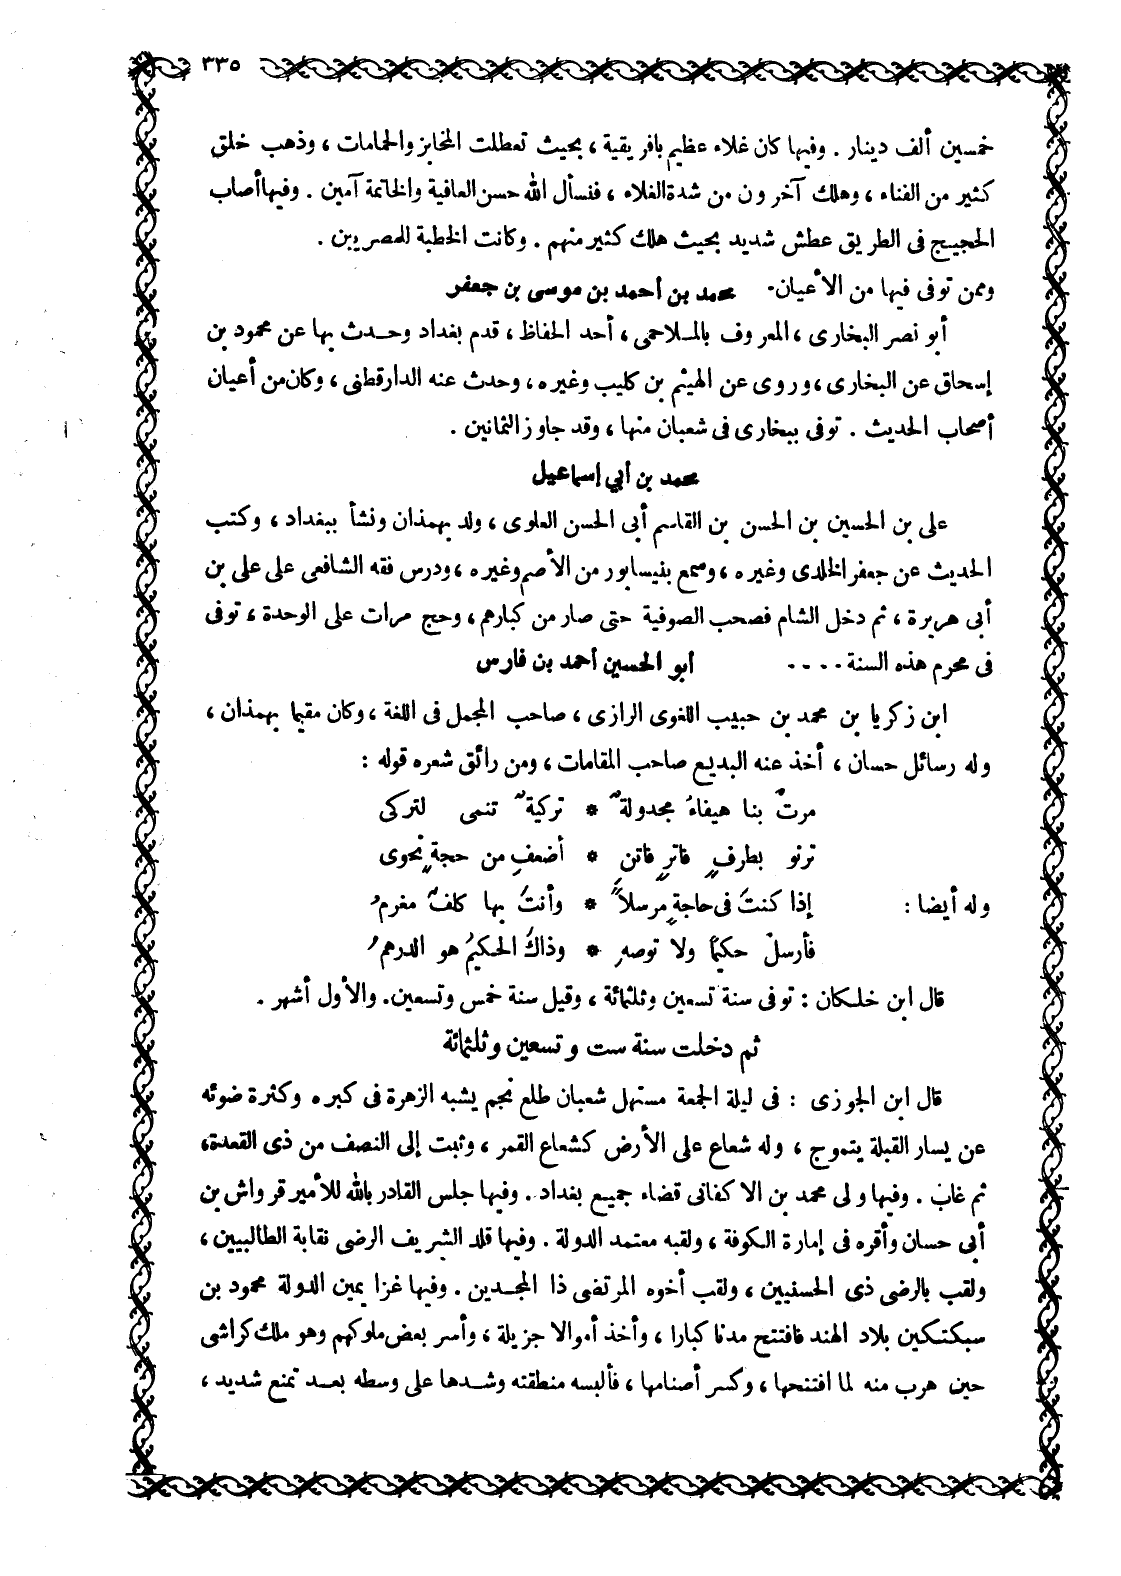 ٣٣٥
خمسين ألف دينار . وفيها كان غلاء عظيم بافريقية ، بحيث تعطلت المخابز والحمامات ، وذهب خلق
كثير من الفناء ، وهلك آخرون من شدة الغلاء ، فنسأل الله حسن العافية والخاتمة آمين . وفيها أصاب
الحجيج فى الطريق عطش شديد بحيث هلك كثير منهم . وكانت الخطبة للمصريين .
وممن توفى فيها من الأعيان- محمد بن أحمد بن موسى بن جعفر
أبو نصر البخارى ، المعروف بالملاحمى ، أحد الحفاظ ، قدم بغداد وحدث بها عن محمود بن
إسحاق عن البخارى ، وروى عن الهيثم بن كليب وغيره ، وحدث عنه الدارقطنى ، وكان من أعيان
أصحاب الحديث . توفى ببخارى فى شعبان منها ، وقد جاوز الثمانين .
محمد بن أبي إسماعيل
على بن الحسين بن الحسن بن القاسم أبى الحسن العلوى ، ولد بهمذان ونشأ ببغداد ، وكتب
الحديث عن جعفر الخلدى وغيره ، وسمع بنيسابور من الأصم وغيره ، ودرس فقه الشافعى على على بن
أبى هريرة ، ثم دخل الشام فصحب الصوفية حتى صار من كبارهم ، وحج مرات على الوحدة ، توفى
فى محرم هذه السنة .... أبو الحسين أحمد بن فارس
ابن زكريا بن محمد بن حبيب اللغوى الرازى ، صاحب المجمل فى اللغة ، وكان مقيما بهمذان ،
وله رسائل حسان ، أخذ عنه البديع صاحب المقامات ، ومن رائق شعره قوله :
مرتْ بنا هيفاءُ مجدولةٌ * تركيةٌ تنمى لتركى
ترنو بطرفٍ فاترٍ فاتن * أضعف من حجةٍ نحوى
وله أيضا : إذا كنتَ فى حاجةٍ مرسلاً * وأنتَ بها كلفٌ مغرمُ
فأرسلْ حكيمًا ولا توصهِ * وذاكَ الحكيمُ هو الدرهمُ
قال ابن خلكان : توفى سنة تسعين وثلثمائة ، وقيل سنة خمس وتسعين. والأول أشهر .
ثم دخلت سنة ست وتسعين وثلثمائة
قال ابن الجوزى : فى ليلة الجمعة مستهل شعبان طلع نجم يشبه الزهرة فى كبره وكثرة ضوئه
عن يسار القبلة يتموج ، وله شعاع على الأرض كشعاع القمر ، وثبت إلى النصف من ذى القعدة،
ثم غاب . وفيها ولى محمد بن الاكفانى قضاء جميع بغداد . وفيها جلس القادر بالله للأمير قرواش بن
أبى حسان وأقره فى إمارة الكوفة ، ولقبه معتمد الدولة . وفيها قلد الشريف الرضى نقابة الطالبيين ،
ولقب بالرضى ذى الحسنيين ، ولقب أخوه المرتضى ذا المجدين . وفيها غزا يمين الدولة محمود بن
سبكتكين بلاد الهند فافتتح مدنا كبارا ، وأخذ أموالا جزيلة ، وأسر بعض ملوكهم وهو ملك كراشى
حين هرب منه لما افتتحها ، وكسر أصنامها ، فألبسه منطقته وشدها على وسطه بعد تمنع شديد ،